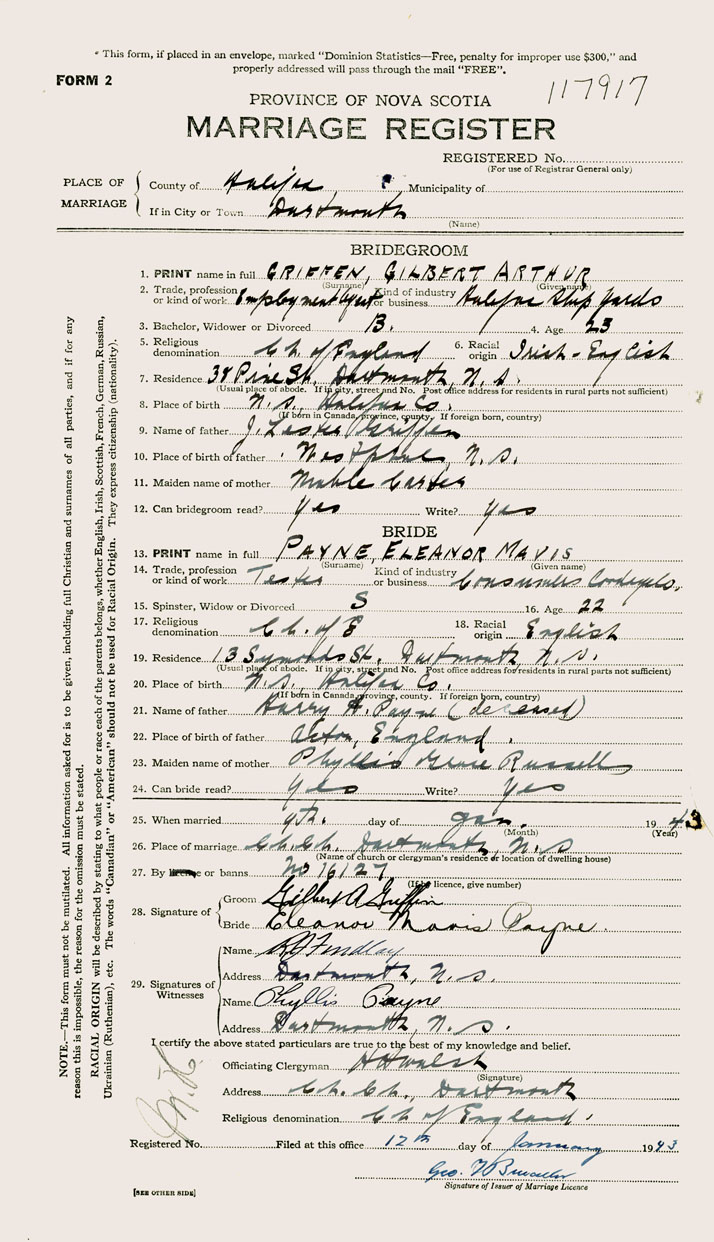 * This form, if placed in an envelope, marked "Dominion Statistics—Free, penalty for improper use $300," and
properly addressed will pass through the mail "FREE".
FORM 2
117917
PROVINCE OF NOVA SCOTIA
MARRIAGE REGISTER
REGISTERED No.
(For use of Registrar General only)
PLACE OF MARRIAGE
County of Halifax Municipality of
If in City or Town Dartmouth
(Name)
BRIDEGROOM
1. PRINT name in full GRIFFEN, GILBERT ARTHUR
(Surname) (Given name)
2. Trade, profession or kind of work Employment Agent Kind of industry or business Halifax Ship Yards
3. Bachelor, Widower or Divorced B. 4. Age 23
5. Religious denomination Ch. of England 6. Racial origin Irish-English
7. Residence 34 Pine St. Dartmouth, N. S.
(Usual place of abode. If in city, street and No. Post office address for residents in rural parts not sufficient)
8. Place of birth N. S. Halifax Co.
(If born in Canada, province, county. If foreign born, country)
9. Name of father J. Lester Griffen
10. Place of birth of father Westphal, N. S.
11. Maiden name of mother Mable Carter
12. Can bridegroom read? Yes Write? Yes
BRIDE
13. PRINT name in full PAYNE, ELEANOR MAVIS
(Surname) (Given name)
14. Trade, profession or kind of work Tester Kind of industry or business Consumers Cordage Co.
15. Spinster, Widow or Divorced S 16. Age 22
17. Religious denomination Ch. of E 18. Racial origin English
19. Residence 13 Symonds St. Dartmouth, N. S.
(Usual place of abode. If in city, street and No. Post office address for residents in rural parts not sufficient)
20. Place of birth N. S. Halifax Co.
(If born in Canada, province, county. If foreign born, country)
21. Name of father Harry H. Payne (deceased)
22. Place of birth of father England.
23. Maiden name of mother Phyllis Grace Russell
24. Can bride read? Yes Write? Yes
25. When married 9th. day of Jan. 1943
(Month) (Year)
26. Place of marriage Ch. Ch. Dartmouth, N. S
(Name of church or clergyman's residence or location of dwelling house)
27. By licence or banns No 16127
(If by licence, give number)
28. Signature of
Groom Gilbert A Griffin
Bride Eleanor Mavis Payne.
29. Signatures of Witnesses
Name Findlay
Address Dartmouth, N. S.
Name Phyllis Payne
Address Dartmouth, N. S.
I certify the above stated particulars are true to the best of my knowledge and belief.
Officiating Clergyman H H Walsh
(Signature)
Address Ch. Ch., Dartmouth
Religious denomination Ch of England.
Registered No. Filed at this office 12th day of January 1943
Geo.
Signature of Issuer of Marriage Licence
[SEE OTHER SIDE]
NOTE.—This form must not be mutilated. All information asked for is to be given, including full Christian and surnames of all parties, and if for any
reason this is impossible, the reason for the omission must be stated.
RACIAL ORIGIN will be described by stating to what people or race each of the parents belongs, whether English, Irish, Scottish, French, German, Russian,
Ukrainian (Ruthenian), etc. The words "Canadian" or "American" should not be used for Racial Origin. They express citizenship (nationality).